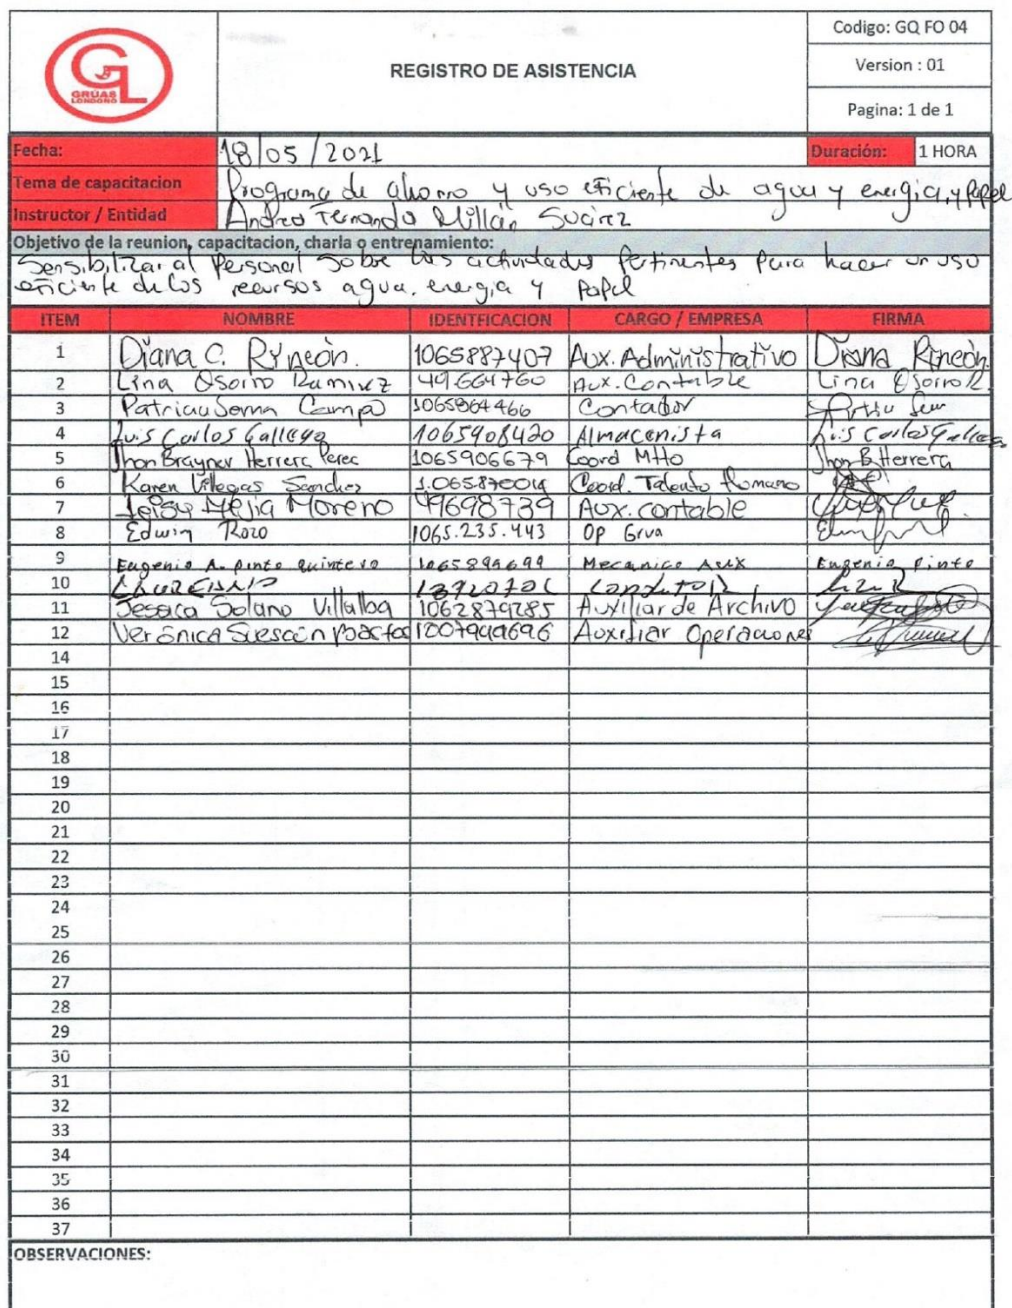 Codigo: GQ FO 04
GL
GRÚAS
LONDOÑO
REGISTRO DE ASISTENCIA
Version : 01
Pagina: 1 de 1
Fecha: 18/05/2021 Duración: 1 HORA
Tema de capacitacion Programa de ahorro y uso eficiente de agua y energia, y Papel
Instructor / Entidad Andres Fernando Millán Suárez
Objetivo de la reunion, capacitacion, charla o entrenamiento:
Sensibilizar al Personal Sobre las actividades Pertinentes Para hacer un uso
eficiente de los recursos agua, energia y Papel
ITEM NOMBRE IDENTFICACION CARGO / EMPRESA FIRMA
1 Diana C. Rincón. 1065887407 Aux. Administrativo Diana Rincón.
2 Lina Osorio Ramirez 49.664760 Aux. Contable Lina Osorio R.
3 Patricia Serna Campo 1065864466 Contador
4 Luis Carlos Gallego 1065908420 Almacenista Luis Carlos Gallego
5 Jhon Brayner Herrera Perez 1065906679 Coord Mtto Jhon B Herrera
6 Karen Villegas Sanchez 1.065870014 Coord. Talento Humano
7 Leisy Mejia Moreno 49698739 Aux. contable
8 Edwin Rozo 1065.235.443 Op Grua
9 Eugenio A. pinto quintero 1065899699 Mecanico Aux Eugenio Pinto
10 Conductor
11 Jessica Solano Villalba 1062879285 Auxiliar de Archivo
12 Verónica Suescún 1007949696 Auxiliar Operaciones
14
15
16
17
18
19
20
21
22
23
24
25
26
27
28
29
30
31
32
33
34
35
36
37
OBSERVACIONES: